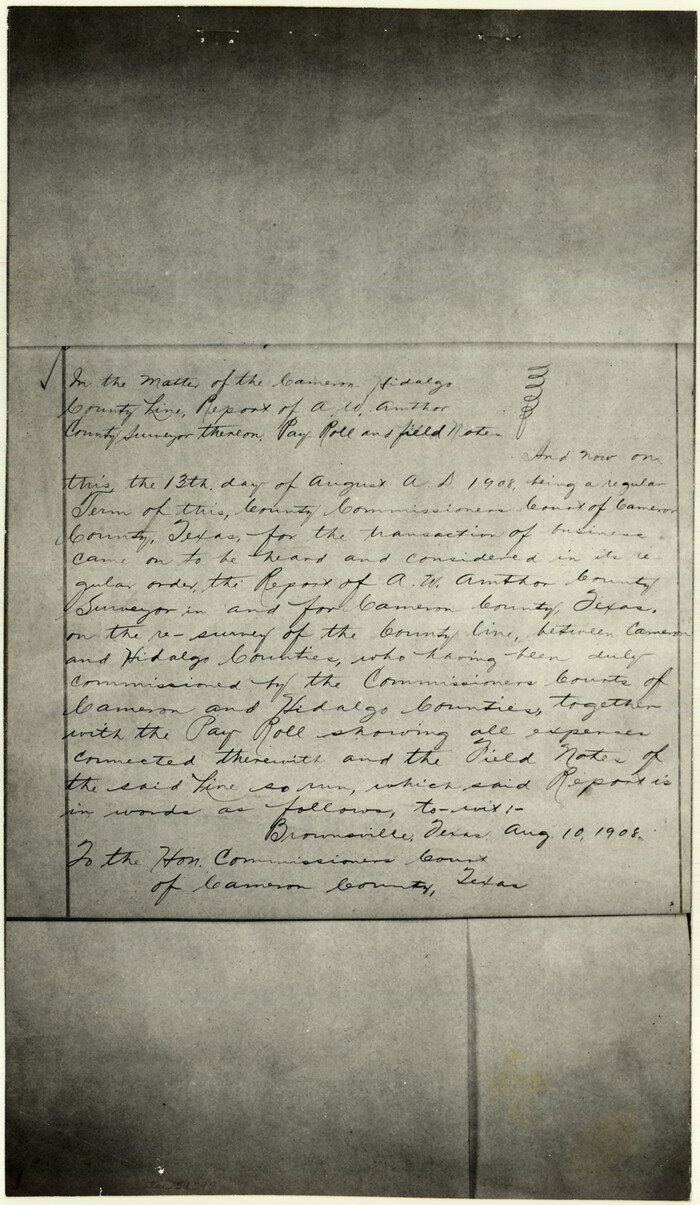 In the Matter of the Cameron Hidalgo
County Line, Report of A. W. Amthor
County Surveyor thereon, Pay Roll and field Notes
And now on
this, the 13th, day of August A. D. 1908, being a regular
Term of this, County Commissioners Court of Cameron
County, Texas, for the transaction of business
came on to be heard and considered in its re
gular order, the Report of A. W. Amthor County
Surveyor in and for Cameron County, Texas,
on the re-survey of the County line, between Cameron
and Hidalgo Counties, who having been duly
commissioned by the Commissioners Courts of
Cameron and Hidalgo Counties, together
with the Pay Roll showing all expenses
connected therewith and the Field Notes of
the said Line so run, which said Report is
in words as follows, to-wit:-
Brownsville, Texas Aug 10, 1908.
To the Hon. Commissioners Court
of Cameron County, Texas